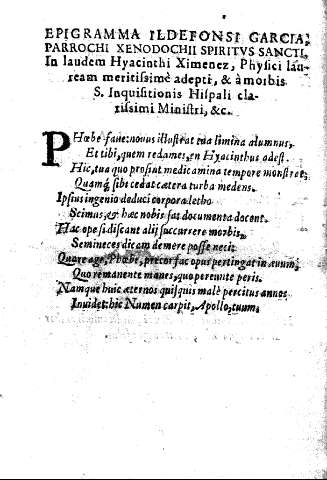 EPIGRAMMA ILDEFONSI GARCIA,
PARROCHI XENODOCHII SPIRITVS SANCTI,
In laudem Hyacinthi Ximenez, Physici lau-
ream meritissimè adepti, & à morbis
S. Inquisitionis Hispali cla-
rissimi Ministri, &c.
PHœbe faue: nouus illustrat tua limina alumnus,
Et tibi, quem redames, en Hyacinthus adest.
Hic, tua quo prosint medicamina tempore monstrat,
Quamq́, sibi cedat cætera turba medens.
Ipsius ingenio deduci corpora letho
Scimus, & hæc nobis sat documenta docent.
Hac ope si discant alij succurrere morbis,
Semineces dicam demere posse neci:
Quare age, Phœbe, precor fac opus pertingat in æuum,
Quo remanente manes, quo pereunte peris.
Namque huic æternos quisquis malè percitus annos
Inuidet: hic Numen carpit, Apollo, tuum.